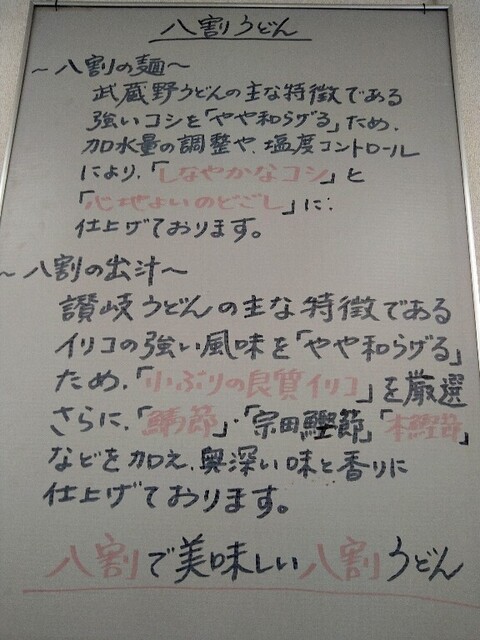 八割うどん
～八割の麺～
武蔵野うどんの主な特徴である
強いコシを「やや和らげる」ため、
加水量の調整や、塩度コントロール
により、「しなやかなコシ」と
「心地よいのどごし」に
仕上げております。
～八割の出汁～
讃岐うどんの主な特徴である
イリコの強い風味を「やや和らげる」
ため、「小ぶりの良質イリコ」を厳選
さらに、「鯖節」・「宗田鰹節」「本鰹節」
などを加え、奥深い味と香りに
仕上げております。
八割で美味しい八割うどん